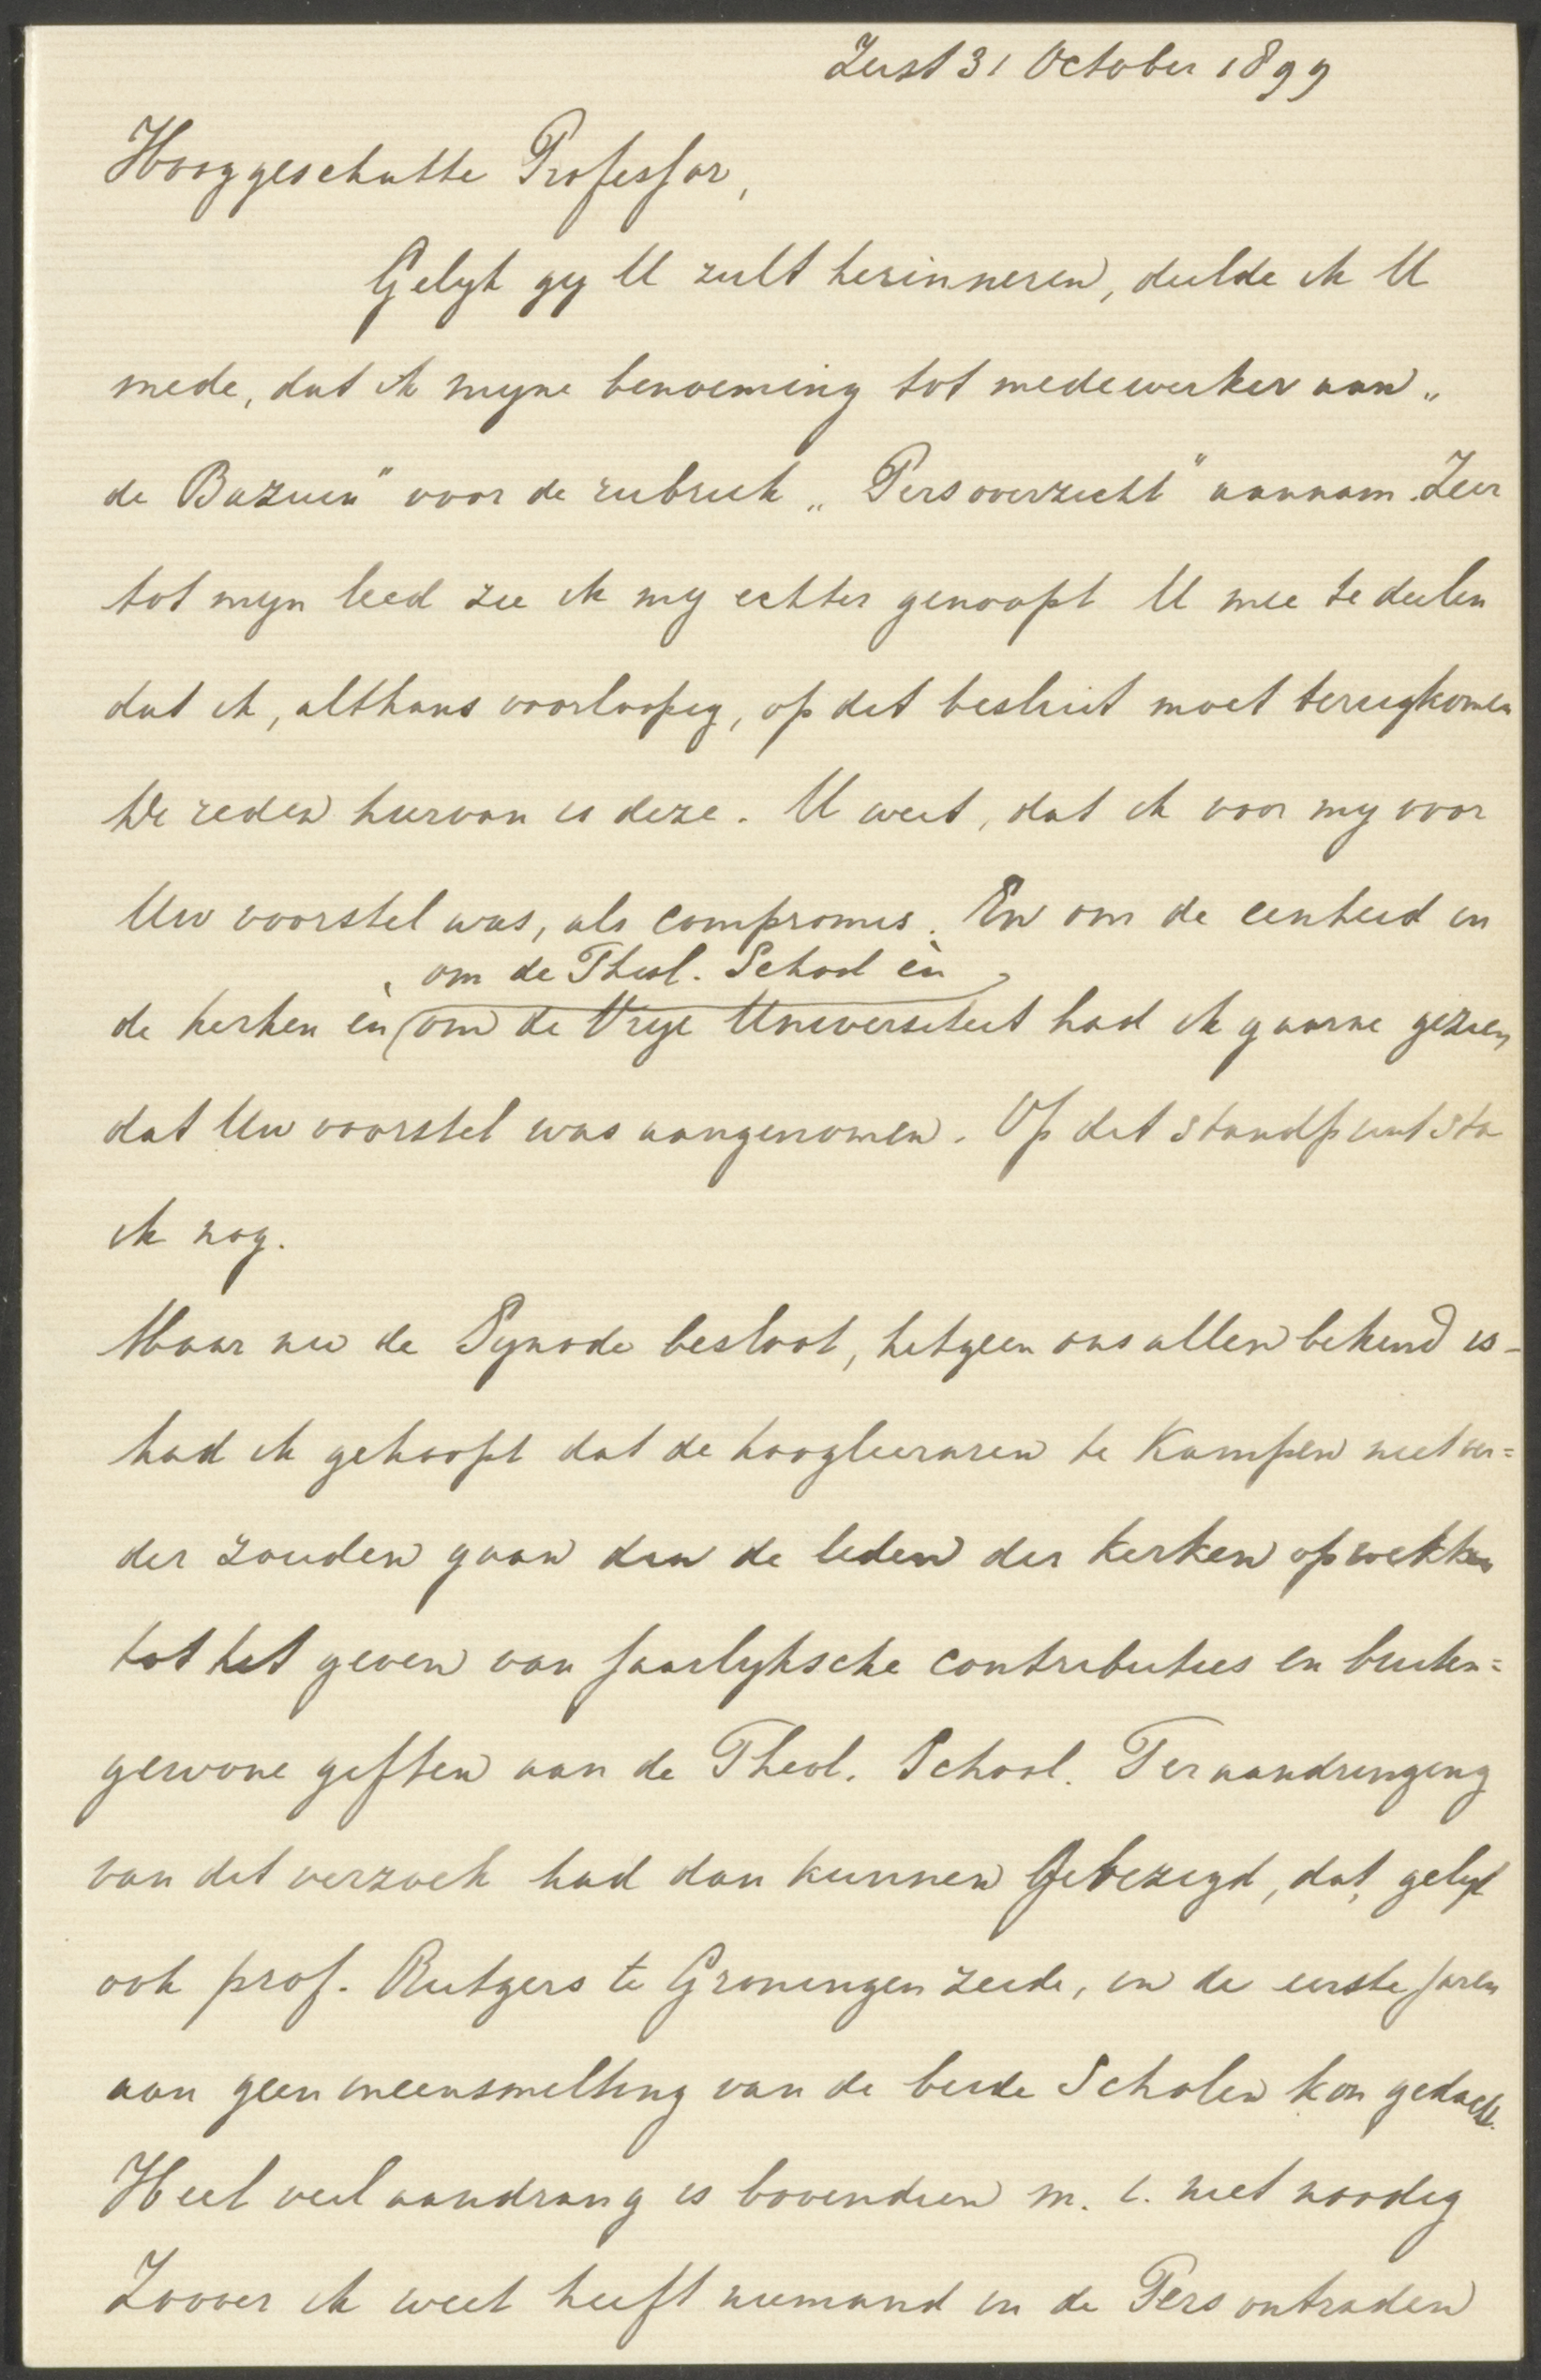 Zeist 31 October 1899
Hooggeschatte Professor,
Gelijk gij U zult herinneren, deelde ik U
mede, dat ik mijne benoeming tot medewerker aan „
de Bazuin" voor de rubriek „Persoverzicht" aannam. Zeer
tot mijn leed zie ik mij echter genoopt U mee te deelen
dat ik, althans voorloopig, op dit besluit moet terugkomen
De reden hiervan is deze. U weet, dat ik voor mij voor
Uw voorstel was, als compromis. En om de eenheid in
om de Theol. School èn
de kerken èn om de Vrije Universiteit had ik gaarne gezien,
dat Uw voorstel was aangenomen. Op dit standpunt sta
ik nog.
Maar nu de Synode besloot, hetgeen ons allen bekend is -
had ik gehoopt dat de hoogleeraren te Kampen niet ver=
der zouden gaan dan de leden der kerken opwekken
tot het geven van jaarlijksche contributies en buiten=
gewone giften aan de Theol. School. Ter aandringing
van dit verzoek had dan kunnen gebezigd, dat, gelijk
ook prof. Rutgers te Groningen zeide, in de eerste jaren
aan geen ineensmelting van de beide Scholen kon gedacht.
Heel veel aandrang is bovendien m. i. niet noodig
Zoover ik weet heeft niemand in de Pers ontraden